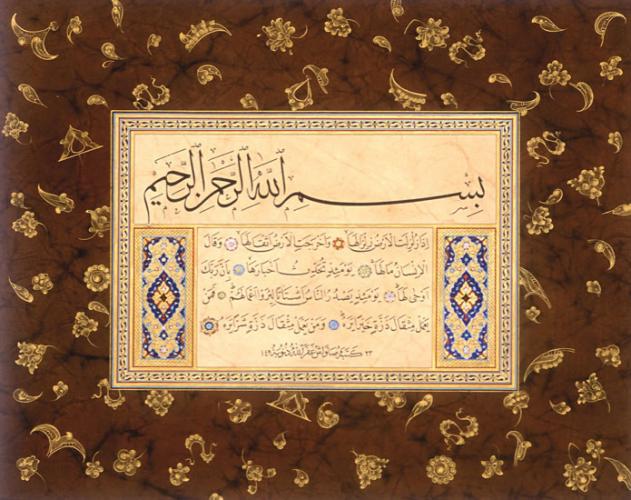 بِسْمِ ٱللَّهِ ٱلرَّحْمَٰنِ ٱلرَّحِيمِ
إِذَا زُلْزِلَتِ الْأَرْضُ زِلْزَالَهَا وَأَخْرَجَتِ الْأَرْضُ أَثْقَالَهَا وَقَالَ
الْإِنْسَانُ مَا لَهَا يَوْمَئِذٍ تُحَدِّثُ أَخْبَارَهَا بِأَنَّ رَبَّكَ
أَوْحَى لَهَا يَوْمَئِذٍ يَصْدُرُ النَّاسُ أَشْتَاتًا لِيُرَوْا أَعْمَالَهُمْ فَمَنْ
يَعْمَلْ مِثْقَالَ ذَرَّةٍ خَيْرًا يَرَهُ وَمَنْ يَعْمَلْ مِثْقَالَ ذَرَّةٍ شَرًّا يَرَهُ